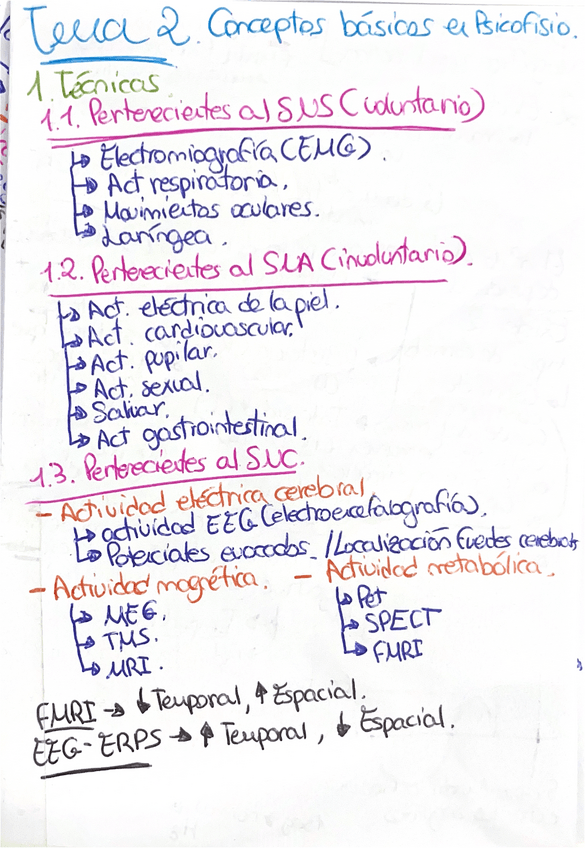 Tema 2. Conceptos básicos en Psicofisio.
1 Técnicas.
1.1. Pertenecientes al SNS (voluntario)
↳ Electromiografía (EMG).
↳ Act respiratoria.
↳ Movimientos oculares.
↳ Laríngea.
1.2. Pertenecientes al SNA (involuntario).
↳ Act. eléctrica de la piel.
↳ Act. cardiovascular.
↳ Act. pupilar.
↳ Act. sexual.
↳ Salivar.
↳ Act gastrointestinal.
1.3. Pertenecientes al SNC.
- Actividad eléctrica cerebral
↳ actividad EEG (electroencefalografía).
↳ Potenciales evocados. / Localización fuentes cerebrales
- Actividad magnética.
↳ MEG.
↳ TMS.
↳ MRI.
- Actividad metabólica.
↳ Pet
↳ SPECT
↳ FMRI
FMRI → ↓ Temporal, ↑ Espacial.
EEG - ERPS → ↑ Temporal, ↓ Espacial.